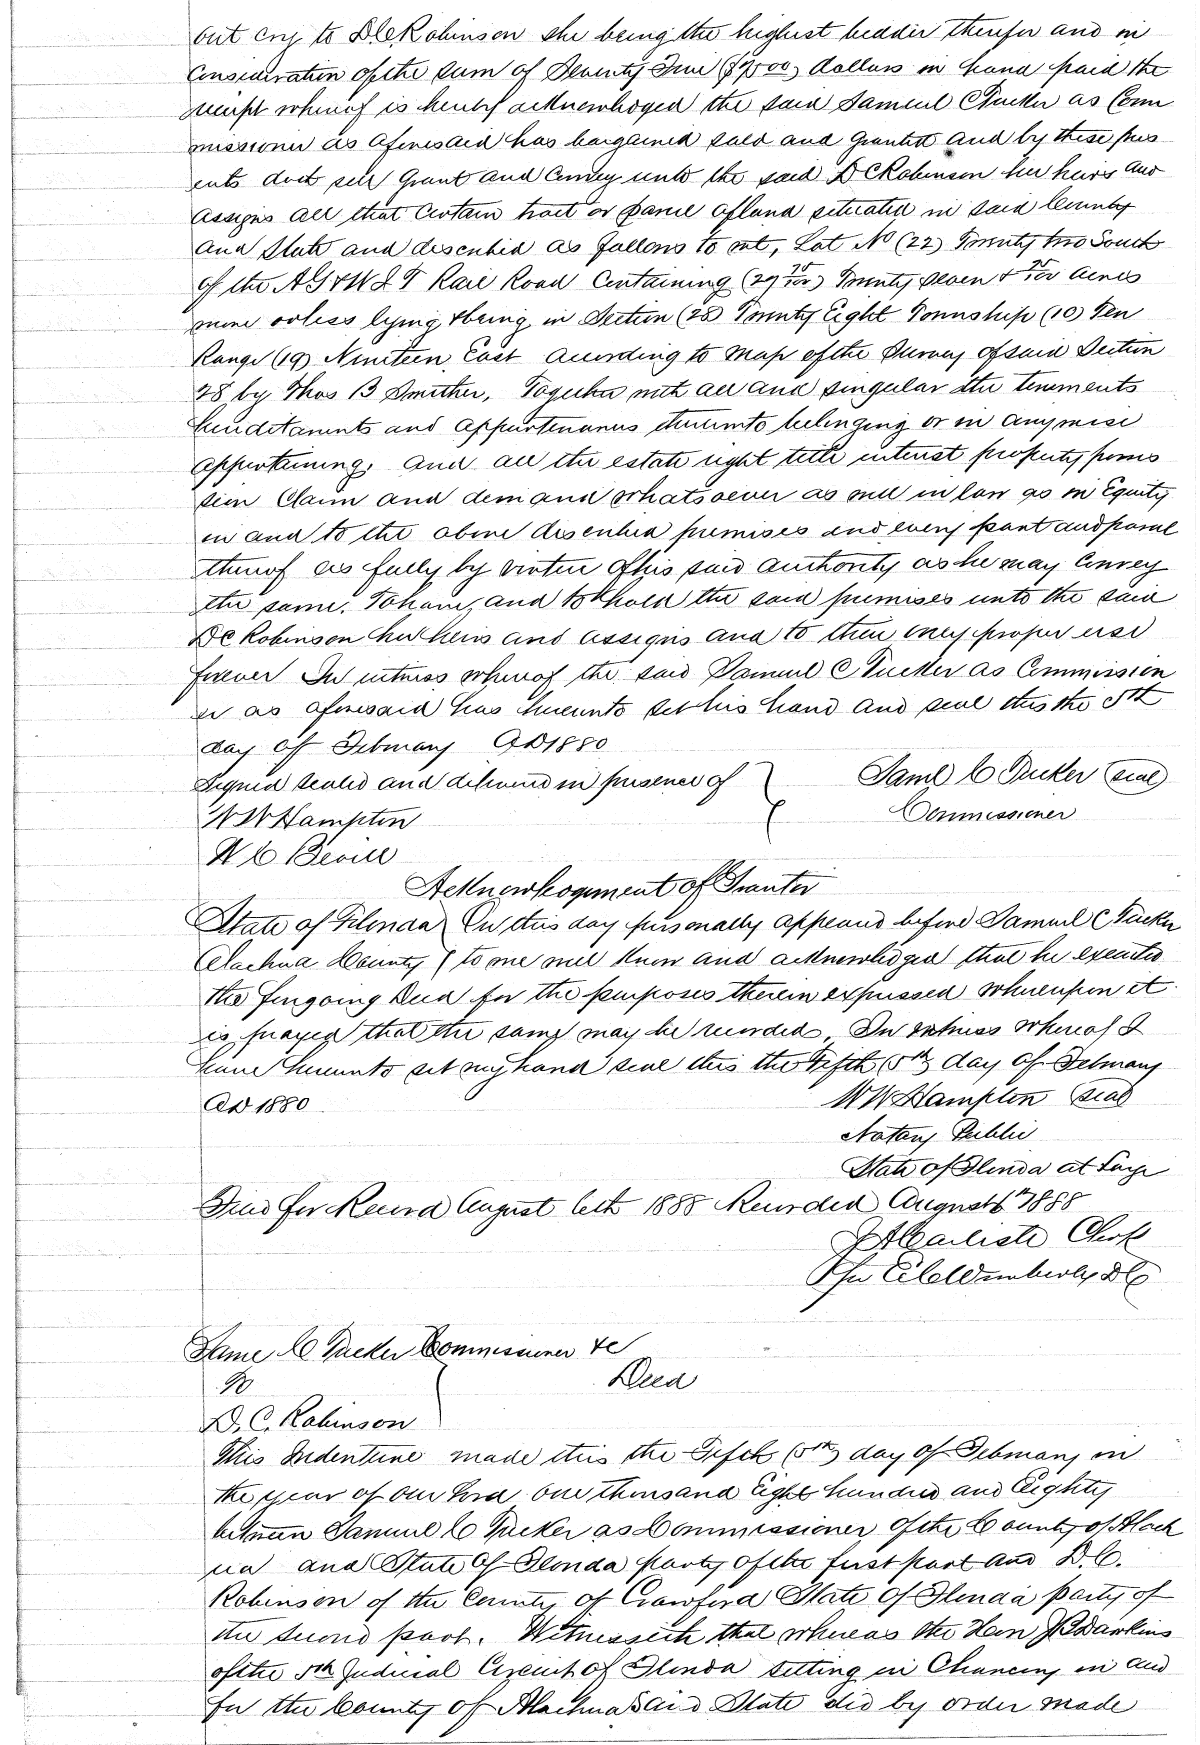 out cry to D C Robinson she being the highest bidder therefor and in
Consideration of the sum of Seventy Five ($75 00) dollars in hand paid the
receipt whereof is hereby acknowledged the said Samuel C Tucker as Com
missioner as aforesaid has bargained sold and granted and by these pres
ents doth sell Grant and Convey unto the said D C Robinson her heirs and
assigns all that Certain tract or parcel of land situated in said County
and State and described as follows to wit, Lot No (22) Twenty two South
of the A G & W I T Rail Road Containing Twenty Seven & acres
more or less lying & being in Section (28) Twenty Eight Township (10) Ten
Range (19) Nineteen East according to Map of the Survey of said Section
28 by Thos B Smither, Together with all and singular the tenements
hereditaments and appurtenances thereunto belonging or in anywise
appertaining, and all the estate right title interest property posses
sion Claim and demand whatsoever as well in law as in Equity
in and to the above described premises and every part and parcel
thereof as fully by virtue of his said authority as he may Convey
the same. To have, and to hold the said premises unto the said
D C Robinson her heirs and assigns and to their only proper use
forever In witness whereof the said Samuel C Tucker as Commission
er as aforesaid has hereunto set his hand and seal this the 5th
day of February AD 1880
Signed sealed and delivered in presence of Saml C Tucker (seal)
W W Hampton Commissioner
W C Bevill
Acknowledgement of Grantor
State of Florida On this day personally appeared before Samuel C Tucker
Alachua County to me well know and acknowledged that he executed
the foregoing Deed for the purposes therein expressed whereupon it
is prayed that the same may be recorded, In witness whereof I
have hereunto set my hand seal this the Fifth (5th) day of February
AD 1880 W W Hampton Seal
Notary Public
State of Florida at Large
Filed for Record August 6th 1888 Recorded August 6th 1888
Clerk
Per DC
Same C Tucker Commissioner &c
To Deed
D. C. Robinson
This Indenture made this the Fifth (5th) day of February in
the year of our Lord one thousand Eight hundred and Eighty
between Samuel C Tucker as Commissioner of the County of Alach
ua and State of Florida party of the first part and D. C.
Robinson of the County of Crawford State of Florida party of
the second part. Witnesseth that whereas the Hon Dawkins
of the 5th Judicial Circuit of Florida sitting in Chancery in and
for the County of Alachua Said State did by order made